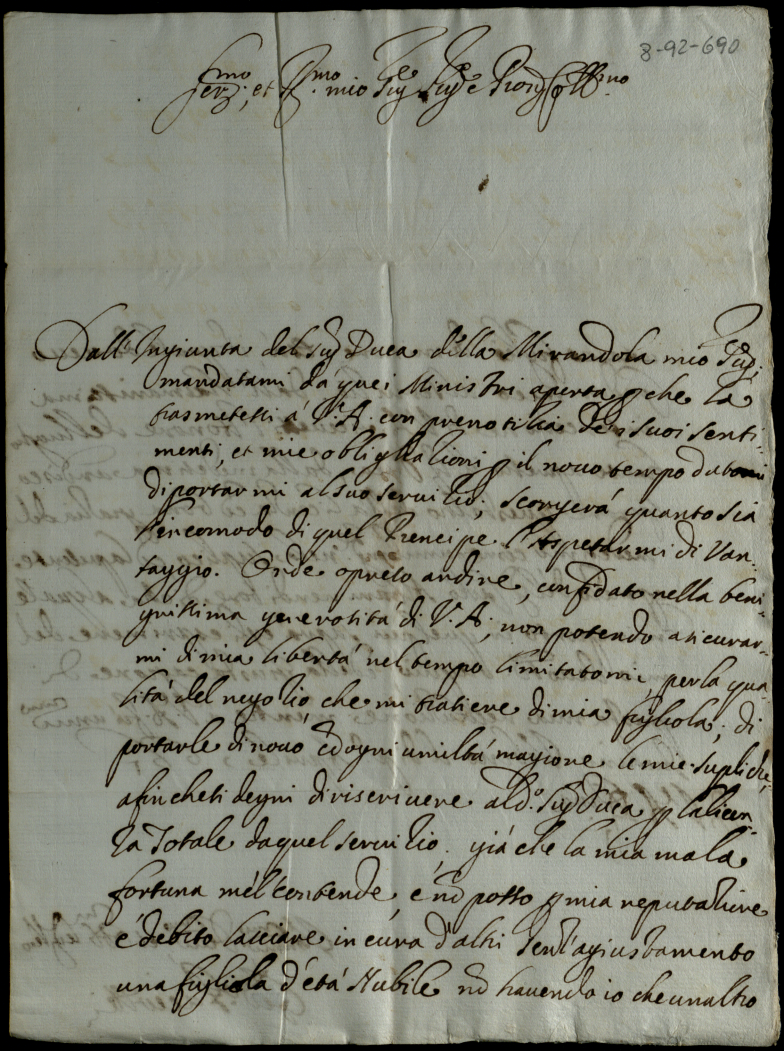 8-92-690
Ser.mo et R.mo mio Sig.re Sig.re e Pron Coll.mo
Dall'Ingiunta del Sig Duca della Mirandola mio Sig:
mandatami da quei Ministri aperta p che la
trasmetessi á V.A. con prenotitia de i suoi senti-
menti, et mie obligationi p il novo tempo datomi
di portarmi al suo servitio; scorgerá quanto sia
l'incomodo di quel Prencipe l'aspetarmi di van-
taggio. Onde preso ardire, confidato nella beni-
gnissima generositá di V.A., non potendo asicurar-
mi di mia libertá nel tempo limitatomi, per la qua-
litá del negotio che mi tratiene di mia figliola; di
portarle di novo cō ogni umiltá magiore le mie supliche,
afinche si degni di riscrivere al d.o Sig Duca p la licen-
za Totale da quel servitio, giá che la mia mala
fortuna me'l contende, é nō posso p mia reputatione
é debito lasciare in cura d'altri senz'agiustamento
una figliola d'etá Nubile nō havendo io che un altro